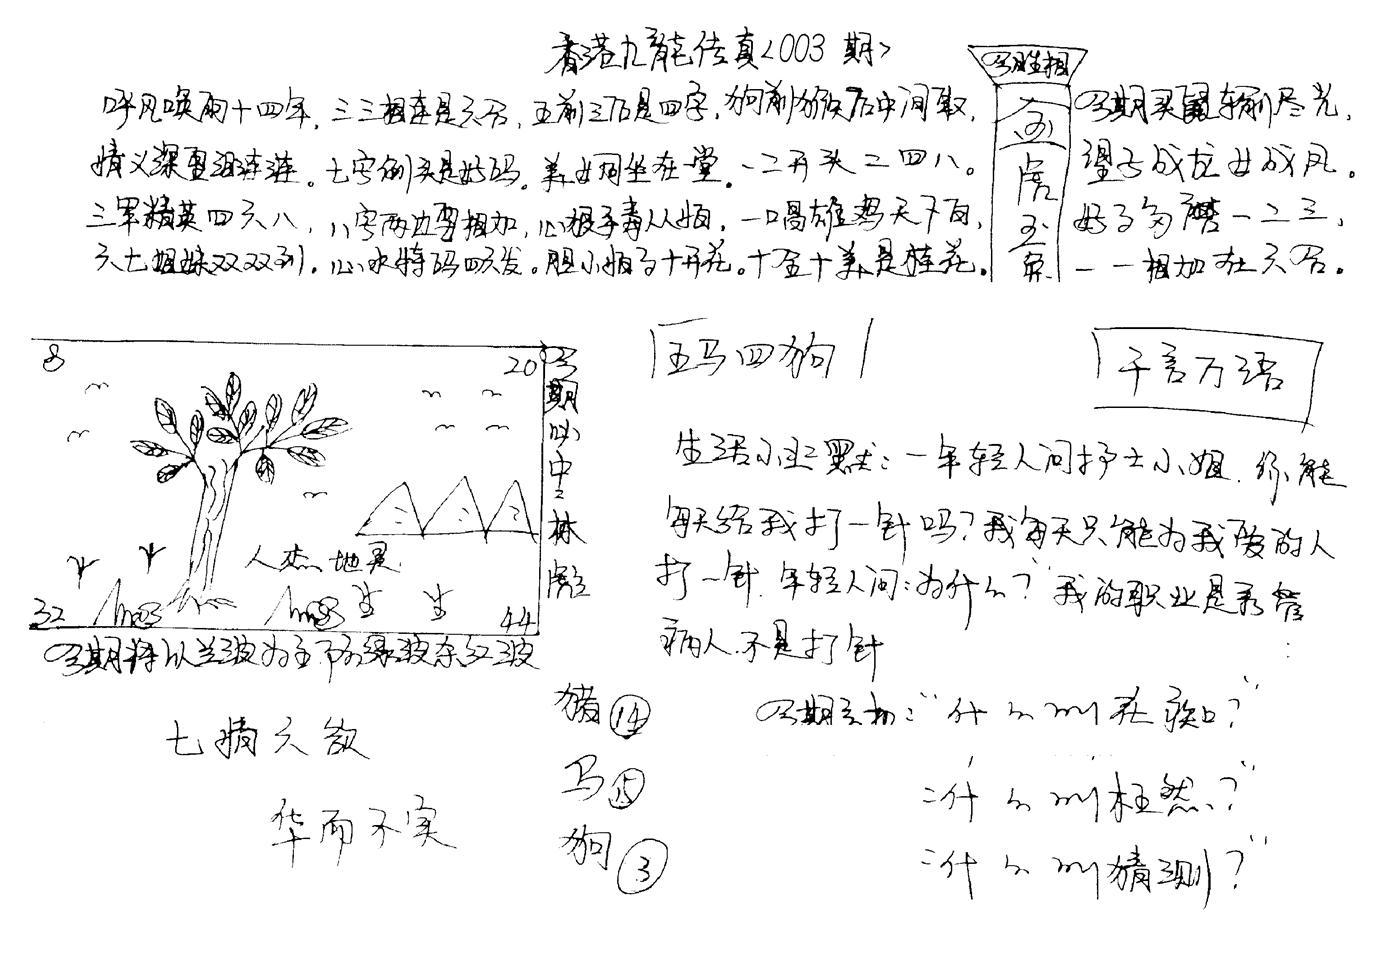 香港九龍传真<003期>
今期生相
呼风唤雨十四年，三三相连是六合，五前三后是四字，狗前猴后中间取，
情义深重泪连连。七字倒头是好码。美女同坐在一堂。一二开头二四八。
三军精英四六八，八字两边要相加，心狠手毒从妇，一唱雄鸡天下白，
六七姐妹双双到。心水特码四六发。胆小妇子十开花。十全十美是桂花。
金
虎
玉
兔
今期买鼠转前尽光，
望子成龙女成凤。
好了多磨一二三，
一一相加在六合。
8
20
32
44
人杰地灵
今期必中林彪
今期特以兰波为主下为绿波余红波
五马四狗
千言万语
生活小幽默：一年轻人问护士小姐，你能
每天给我打一针吗？我每天只能为我爱的人
打一针。年轻人问：为什么？我的职业是看管
病人不是打针
今期玄机：“什么叫在?”
“什么叫枉然？”
“什么叫猜测？”
七情六欲
华而不实
猪⑭
马⑮
狗③